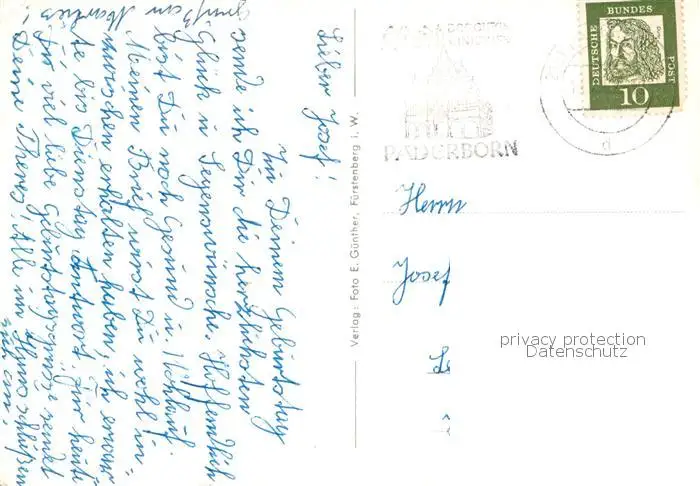 Lieber Josef!
Zu Deinem Geburtstag
sende ich Dir die herzlichsten
Glück u Segenswünsche. Hoffentlich
bist Du noch Gesund u. Wohlauf.
Meinen Brief wirst Du wohl in
zwischen erhalten haben, ich erwar
te bis Dienstag Antwort. Für heute
Dir viel liebe Geburtstagsgrüsse sendet
Deine Thres! Alle im Haus schließen
sich an!
Gruß an
Verlag: Foto E. Günther, Fürstenberg i. W.
PADERBORN
DEUTSCHE
BUNDES
POST
10
d
Herrn
Josef
privacy protection
Datenschutz